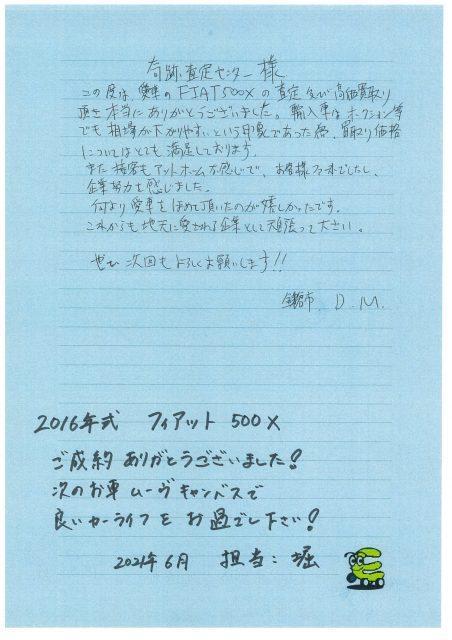 奇跡査定センター様
この度は愛車のFIAT500Xの査定及び高価買取り
頂き本当にありがとうございました。輸入車はオークション等
でも相場が下がりやすいという印象であった為、買取り価格
についてはとても満足しております。
また接客もアットホームな感じで、お客様ファーストでしたし、
企業努力を感じました。
何より愛車をほめて頂いたのが嬉しかったです。
これからも地元に愛される企業として頑張って下さい。
ぜひ次回もよろしくお願いします!!
D.M.
2016年式 フィアット 500X
ご成約ありがとうございました!
次のお車 ムーヴキャンバスで
良いカーライフをお過ごし下さい!
2021年6月 担当:堀